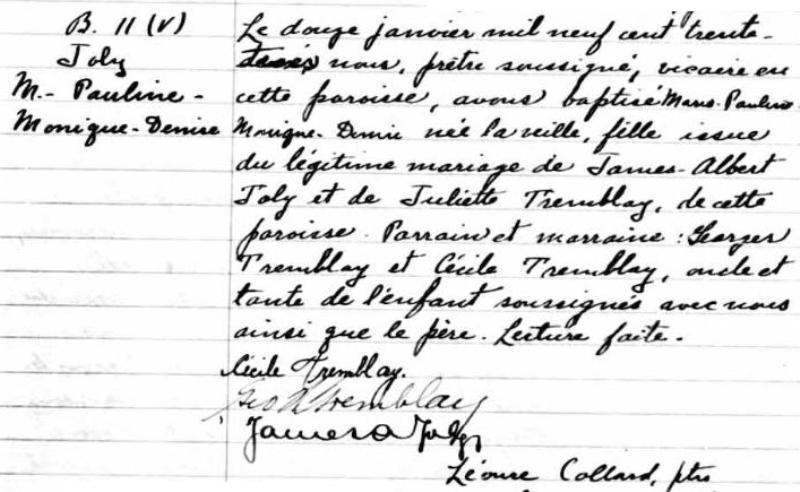 B. 11 (V)
Joly
M.- Pauline-
Monique-Denise
Le douze janvier mil neuf cent trente-
nous, prêtre soussigné, vicaire en
cette paroisse, avons baptisé Marie-Pauline
Monique-Denise née la veille, fille issue
du légitime mariage de James-Albert
Joly et de Juliette Tremblay, de cette
paroisse. Parrain et marraine : Georges
Tremblay et Cécile Tremblay, oncle et
tante de l'enfant soussignés avec nous
ainsi que le père. Lecture faite.
Cécile Tremblay.
Geo A Tremblay
James A Joly
Léonce Collard, ptre